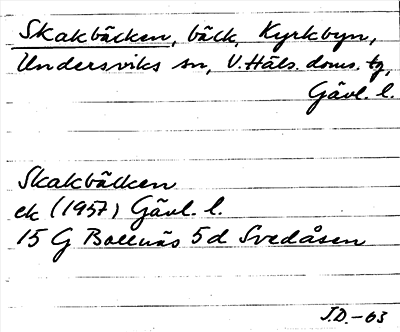 Skakbäcken, bäck, Kyrkbyn,
Undersviks sn, V. Häls. doms. tg,
Gävl. l.
Skakbäcken
ek (1957) Gävl. l.
15 G Bollnäs 5d Svedåsen
J.D.-63